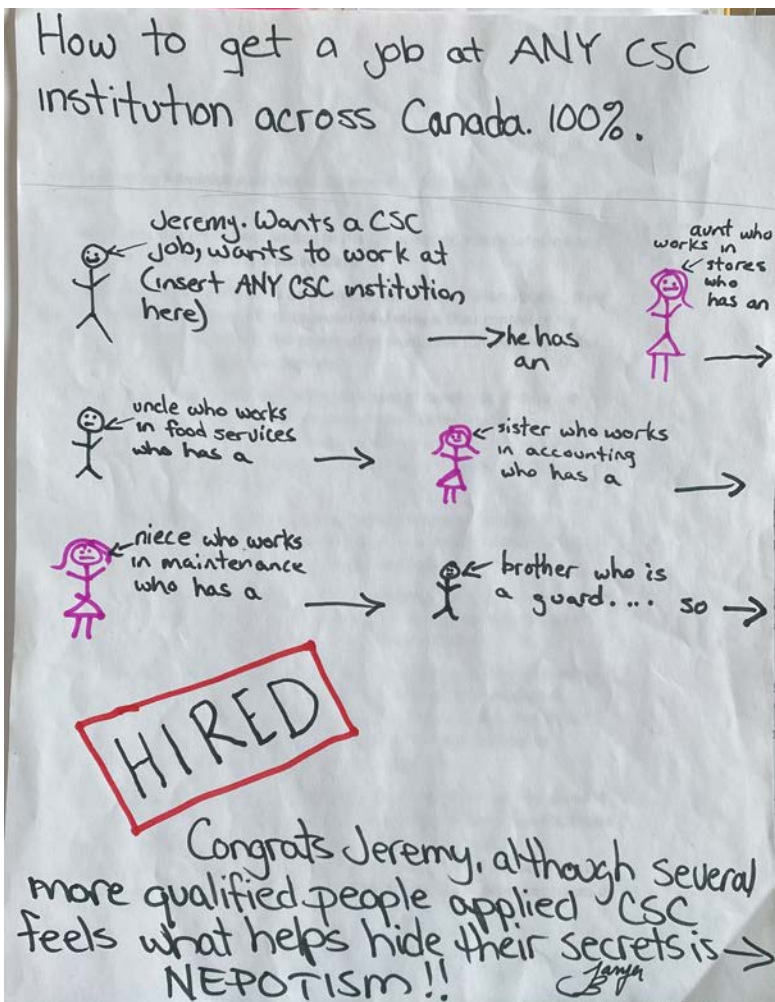 How to get a job at ANY CSC
institution across Canada. 100%.
Jeremy. Wants a CSC
job, wants to work at
(insert ANY CSC institution
here)
he has
an
aunt who
works in
stores
who
has an
uncle who works
in food services
who has a
sister who works
in accounting
who has a
niece who works
in maintenance
who has a
brother who is
a guard.... so
HIRED
Congrats Jeremy, although several
more qualified people applied CSC
feels what helps hide their secrets is
NEPOTISM!!